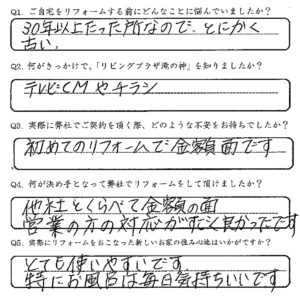 Q1. ご自宅をリフォームする前にどんなことに悩んでいましたか？
30年以上たった所なので、とにかく
古い.
Q2. 何がきっかけで、「リビングプラザ滝の神」を知りましたか？
テレビCMやチラシ
Q3. 実際に弊社でご契約を頂く際、どのような不安をお持ちでしたか？
初めてのリフォームで金額面です
Q4. 何が決め手となって弊社でリフォームをして頂けましたか？
他社とくらべて金額の面
営業の方の対応がすごく良かったです
Q5. 実際にリフォームをおこなった新しいお家の住み心地はいかがですか？
とても使いやすいです
特にお風呂は毎日気持ちいいです